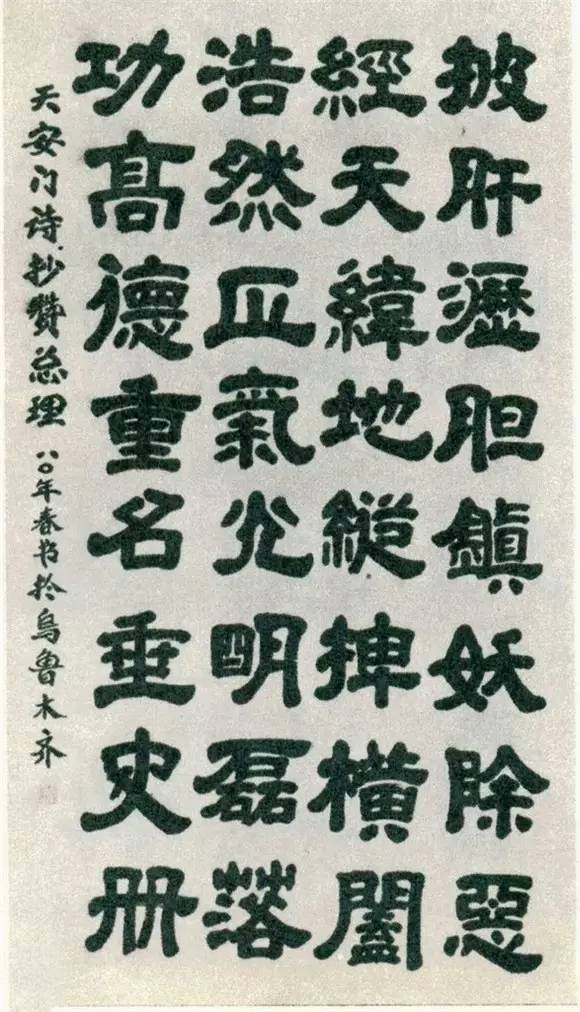 披肝瀝胆鎮妖除惡
經天緯地縱捭橫闔
浩然正氣光明磊落
功高德重名垂史册
天安门诗抄赞总理 八〇年春书於乌鲁木齐